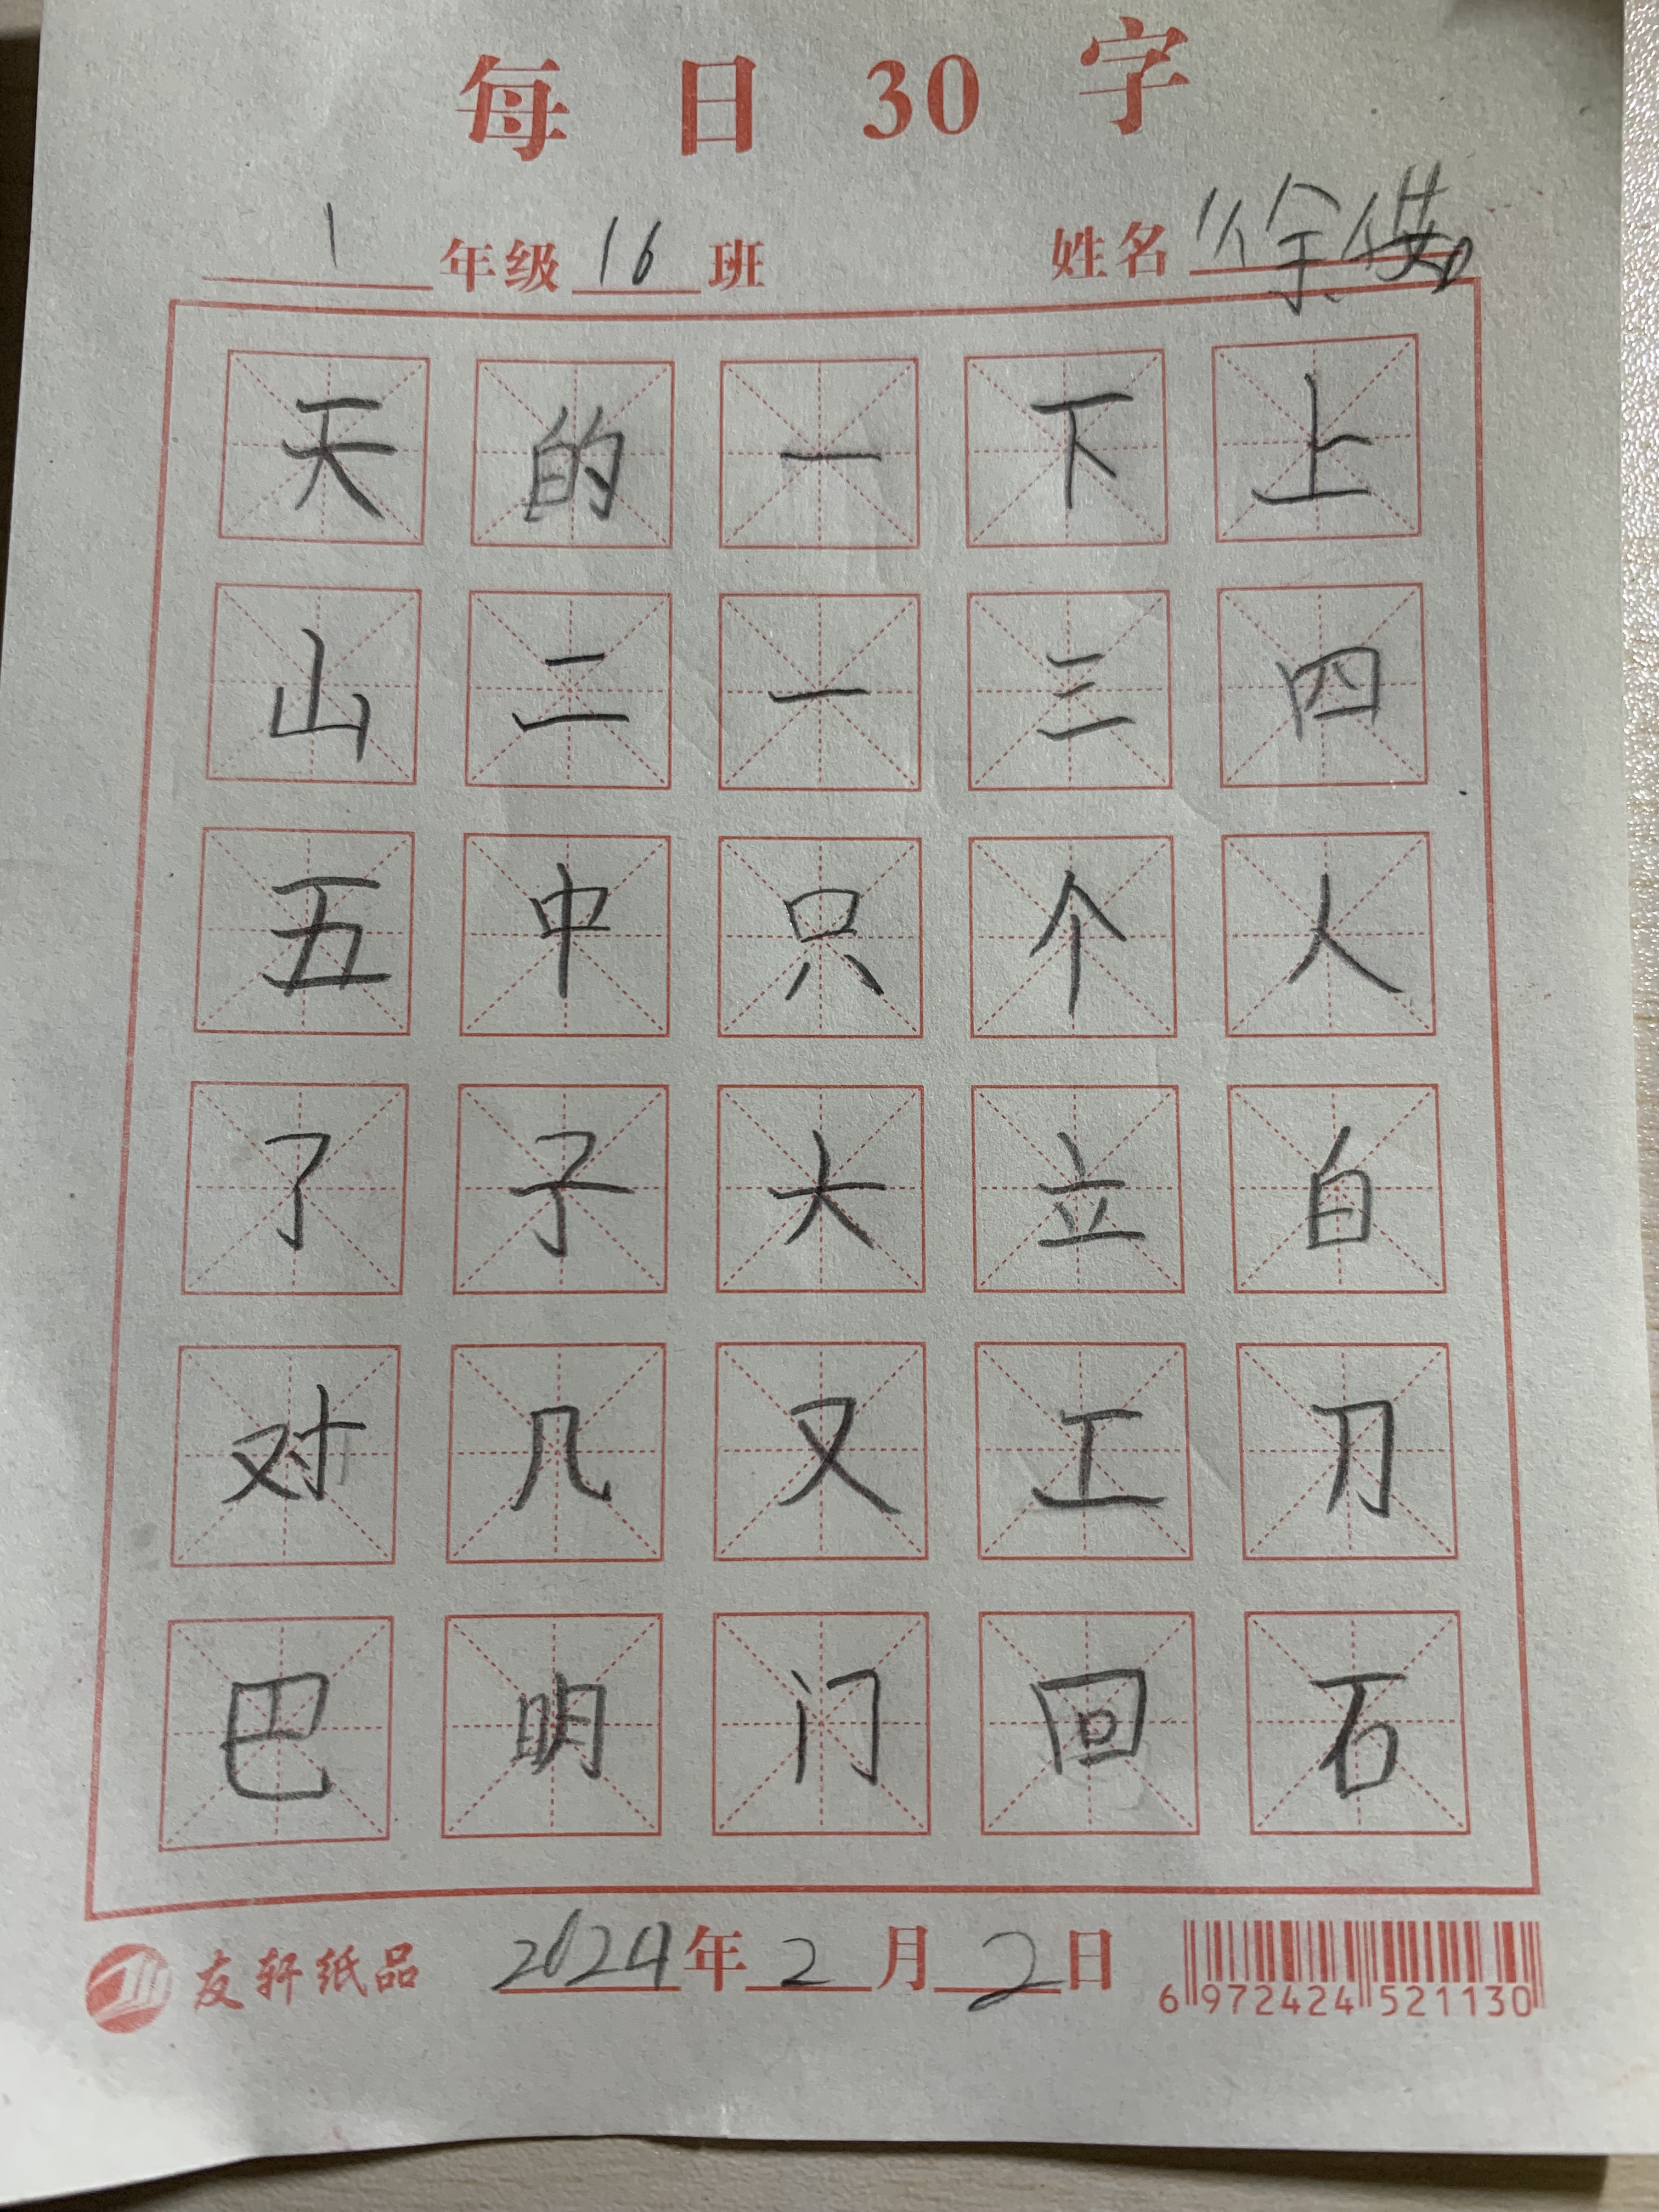 每日30字
1年级16班 姓名徐
天的一下上
山二一三四
五中只个人
了子大立白
对几又工刀
巴明门回石
友轩纸品 2024年2月2日 6 972424 521130